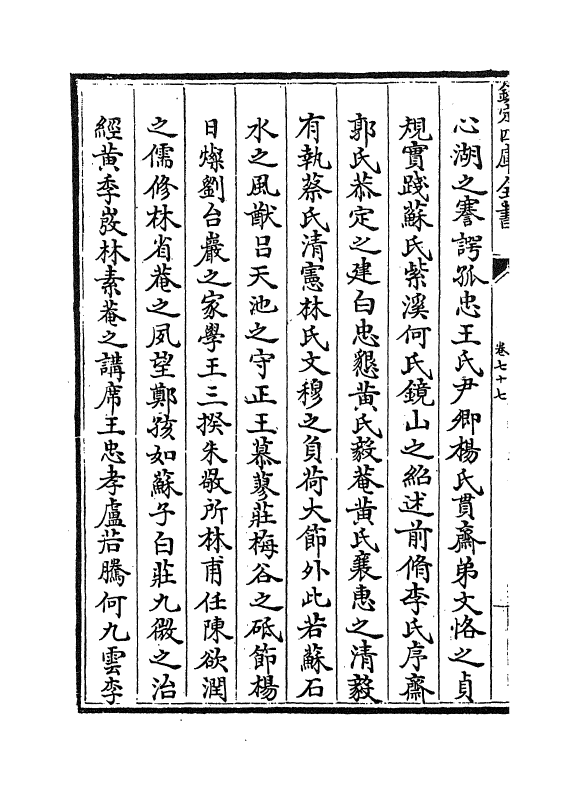 欽定四庫全書
卷七十七
心湖之謇諤孤忠王氏尹卿楊氏貫齋弟文恪之貞
規實踐蘇氏紫溪何氏鏡山之紹述前脩李氏序齋
郭氏恭定之建白忠懇黃氏毅菴黃氏襄惠之清毅
有執蔡氏清憲林氏文穆之負荷大節外此若蘇石
水之風猷呂天池之守正王慕蓼莊梅谷之砥節楊
日燦劉台巖之家學王三揆朱敬所林甫任陳欲潤
之儒修林省菴之夙望鄭孩如蘇子白莊九微之治
經黃季弢林素菴之講席王忠孝盧若騰何九雲李